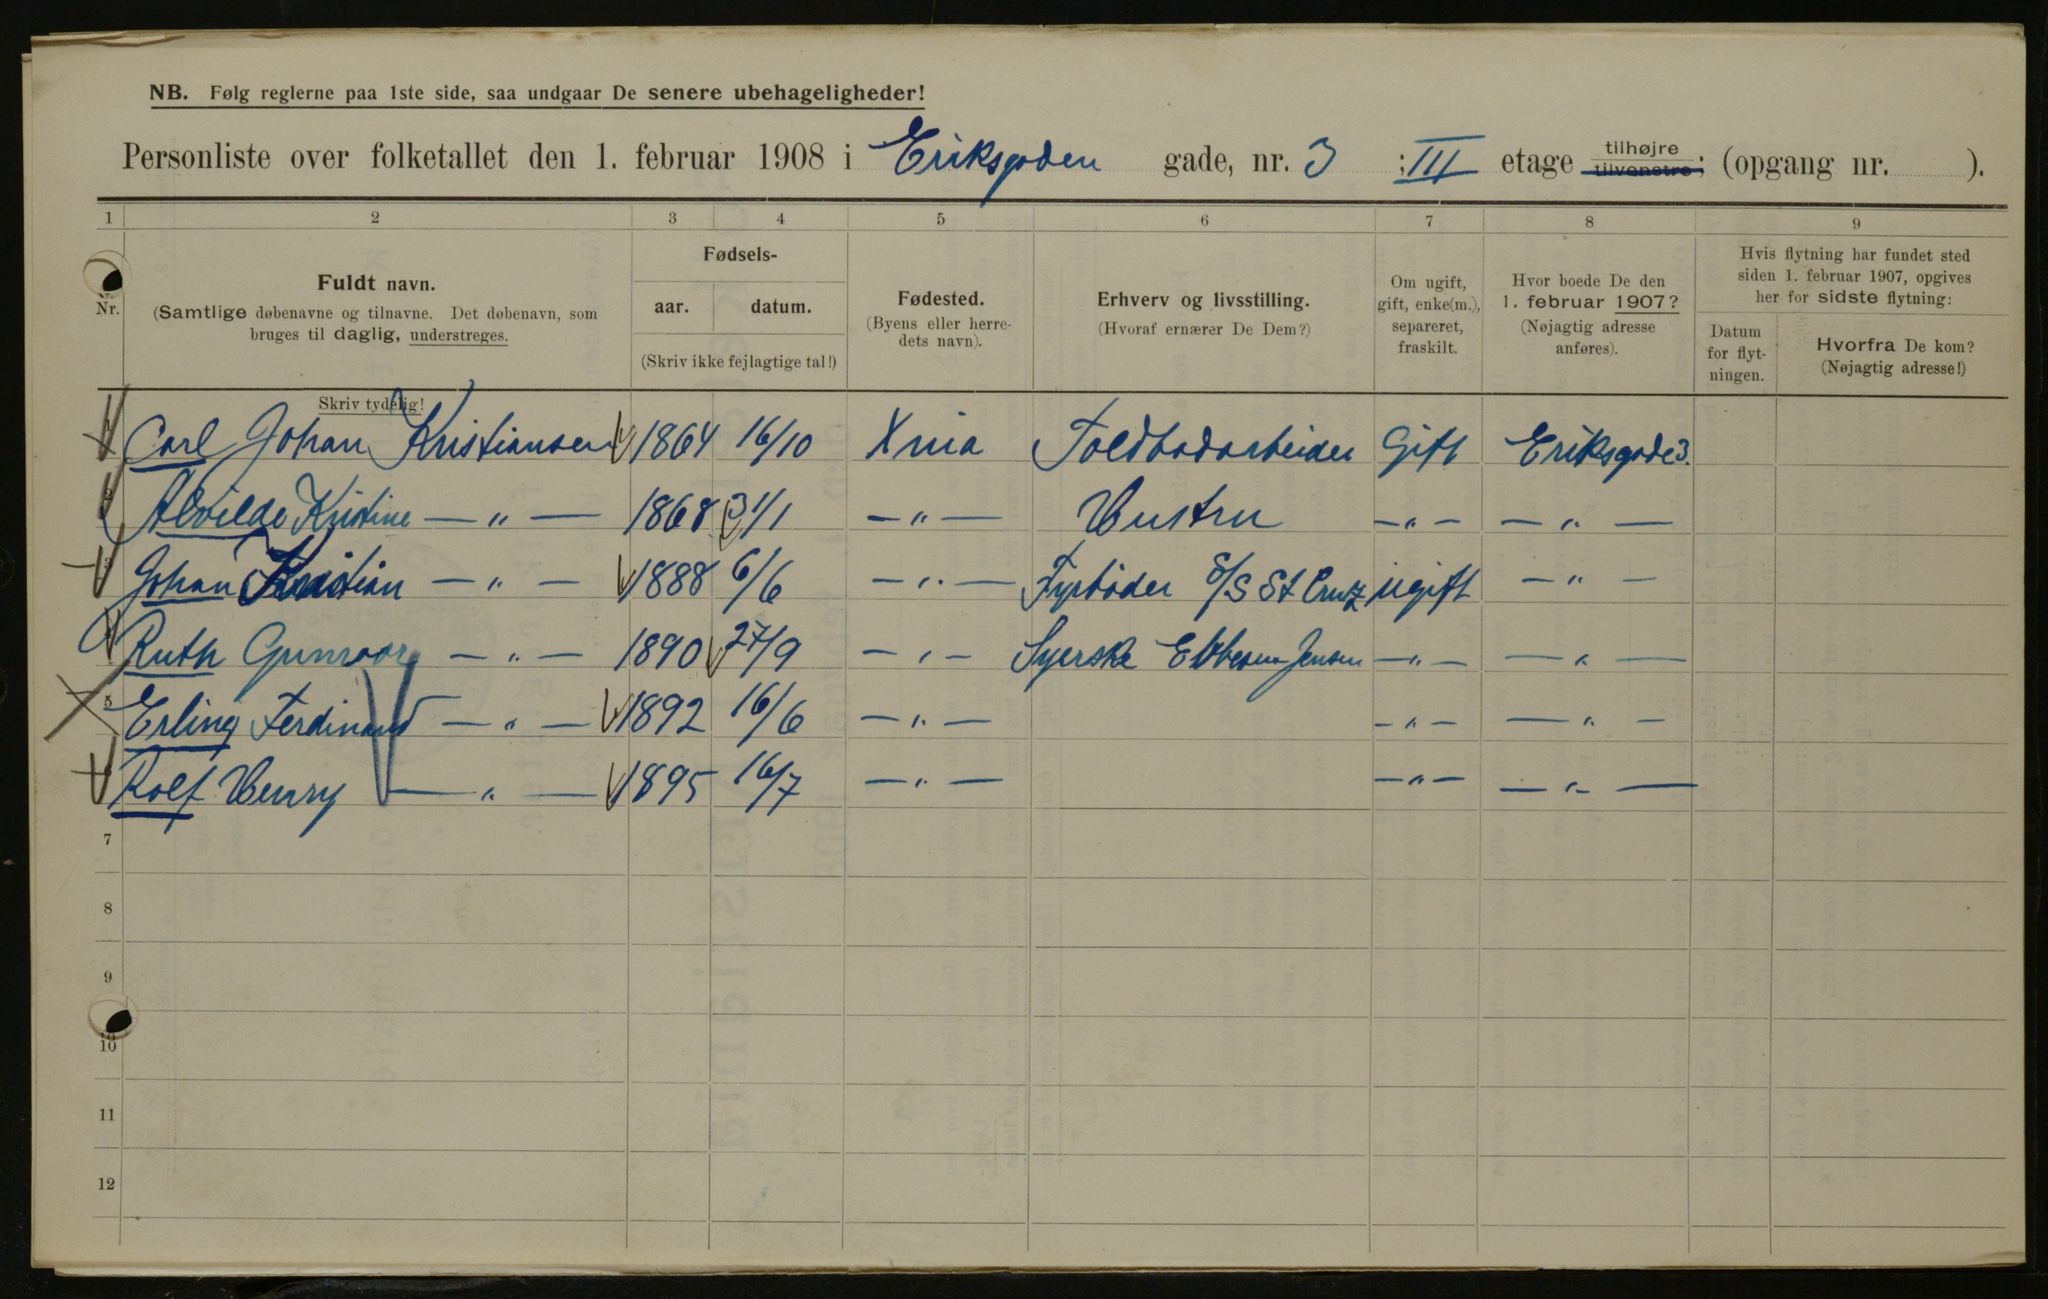 NB. Følg reglerne paa 1ste side, saa undgaar De senere ubehageligheder!
Personliste over folketallet den 1. februar 1908 i Eriksgaden gade, nr. 3 ; III etage tilhøjre tilvenstre; (opgang nr. ).
1 2 3 4 5 6 7 8 9
Nr.
Fuldt navn.
(Samtlige døbenavne og tilnavne. Det døbenavn, som
bruges til daglig, understreges.
Skriv tydelig!
Fødsels-
aar. datum.
(Skriv ikke fejlagtige tal!)
Fødested.
(Byens eller herre-
dets navn).
Erhverv og livsstilling.
(Hvoraf ernærer De Dem?)
Om ugift,
gift, enke(m.),
separeret,
fraskilt.
Hvor boede De den
1. februar 1907?
(Nøjagtig adresse
anføres).
Hvis flytning har fundet sted
siden 1. februar 1907, opgives
her for sidste flytning:
Datum
for flyt-
ningen.
Hvorfra De kom?
(Nøjagtig adresse!)
Carl Johan Kristiansen 1864 16/10 Xnia Toldbodarbeider Gift Eriksgade 3.
2 Alvilde Kristine — " — 1868 31/1 — " — Hustru — " — — " —
3 Johan Kristian — " — 1888 6/6 — " — Fyrbøder S/S St Cruz ugift — " —
Ruth Gunvor — " — 1890 27/9 — " — Syerske Ebbesen Jensen — " — — " —
5 Erling Ferdinand — " — 1892 16/6 — " — — " — — " —
Rolf Henry — " — 1895 16/7 — " — — " — — " —
7
8
9
10
11
12